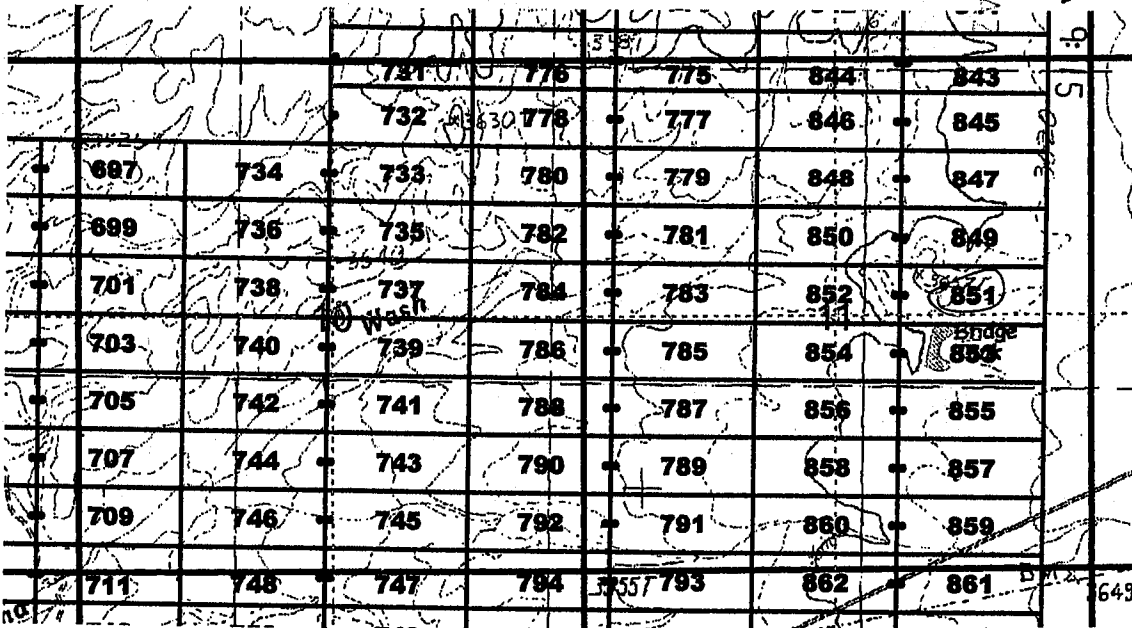 3481
9
731 776 775 844 843
5
732 3630 778 777 846 845
697 734 733 780 779 848 847
699 736 735 782 781 850 849
701 738 737 784 783 852 851
10 Wash 11
Bridge
703 740 739 786 785 854 853
705 742 741 788 787 856 855
707 744 743 790 789 858 857
709 746 745 792 791 860 859
711 748 747 794 793 862 861
649